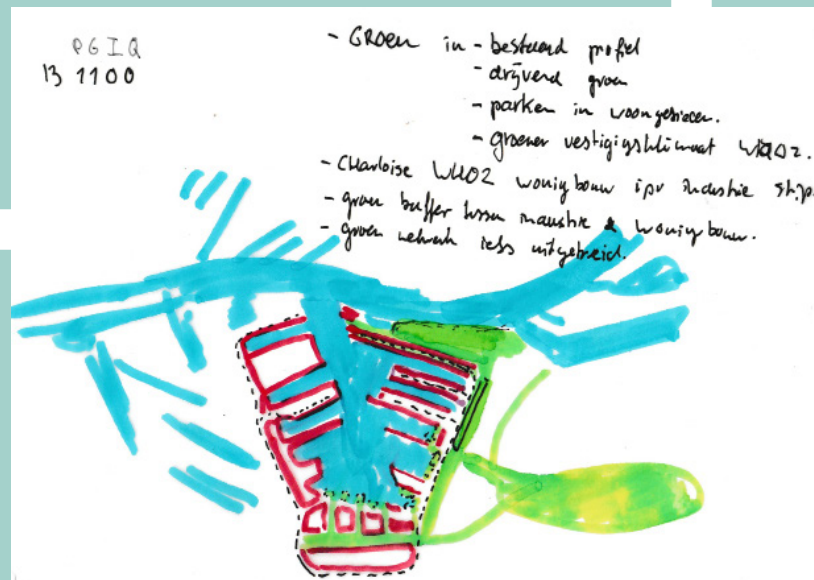 PGIQ
13 1100
- GROEN in - bestaand profiel
- drijvend groen
- parken in woongebieden.
- groener vestigingsklimaat
- Charloise WH02 woningbouw ipv industrie
- groen buffer tussen industrie & woningbouw.
- groen netwerk iets uitgebreid.